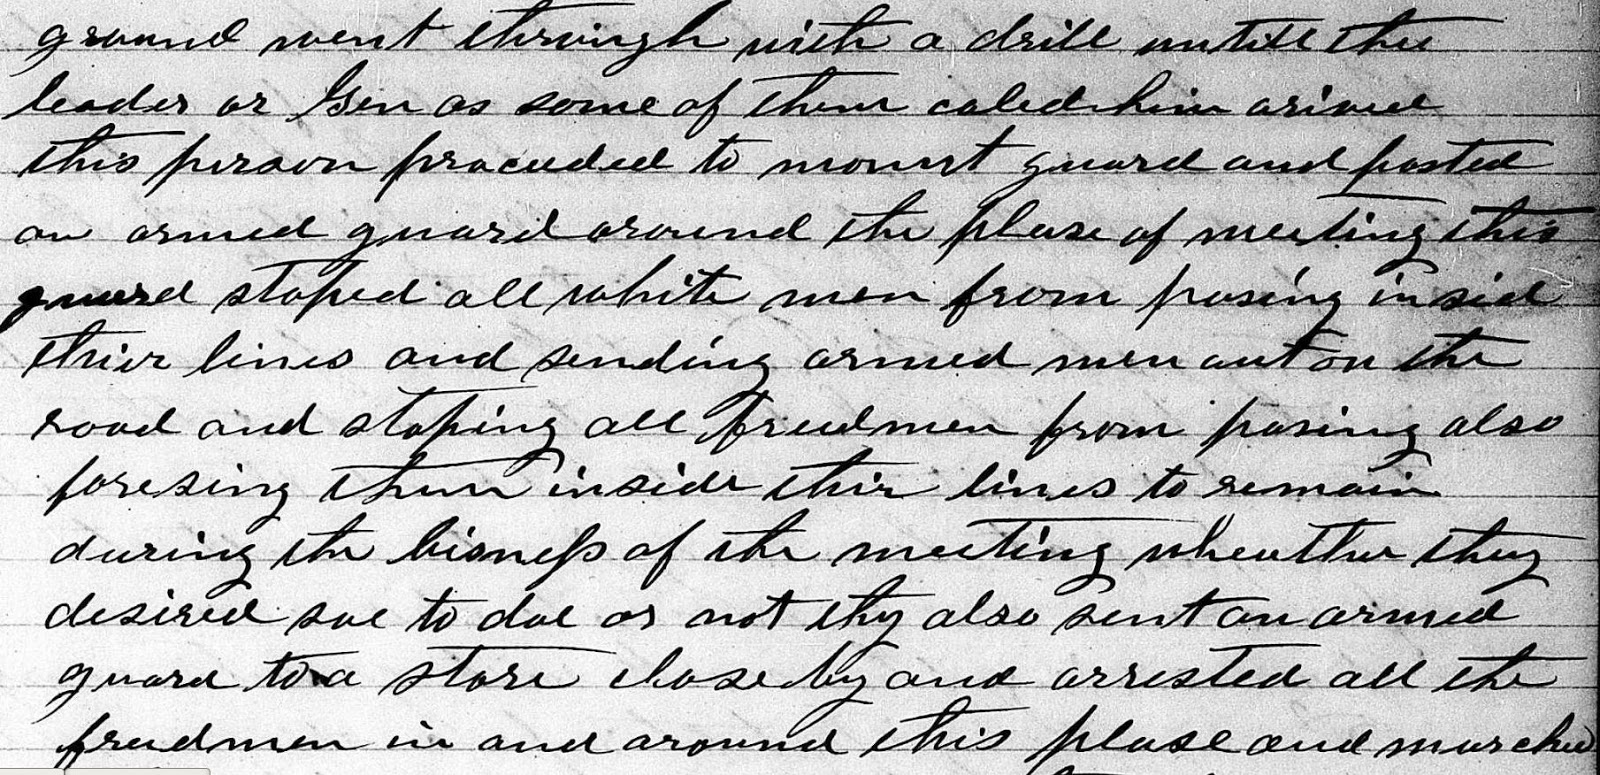 ground went through with a drill untill the
leader or Gen as some of them caled him arived
this person proceeded to mount guard and posted
an armed guard around the plase of meeting this
guard stoped all white men from pasing insid
thier lines and sending armed men out on the
road and stoping all freedmen from pasing also
foresing them inside thir lines to remain
during the bisness of the meeting wheather they
desired soe to doe or not thy also sent an armed
guard to a store close by and arrested all the
freedmen in and around this plase and marched